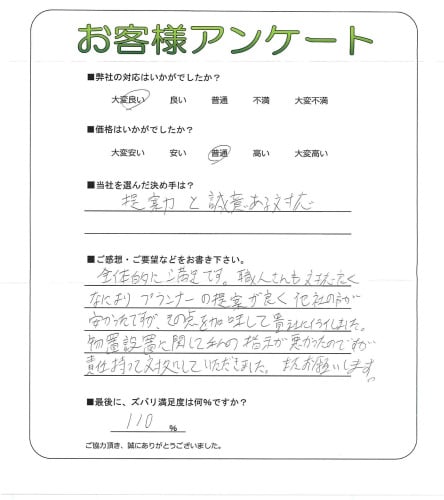 お客様アンケート
■弊社の対応はいかがでしたか？
大変良い 良い 普通 不満 大変不満
■価格はいかがでしたか？
大変安い 安い 普通 高い 大変高い
■当社を選んだ決め手は？
提案力と誠意ある対応
■ご感想・ご要望などをお書き下さい。
全体的に満足です。職人さんも対応良く
なにより プランナーの提案が良く 他社の方が
安かったですが、その点を加味して貴社にイライしました。
物置設置に関して私の指示が悪かったのですが
責任持って対処していただきました。またお願いします
■最後に、ズバリ満足度は何％ですか？
110 %
ご協力頂き、誠にありがとうございました。